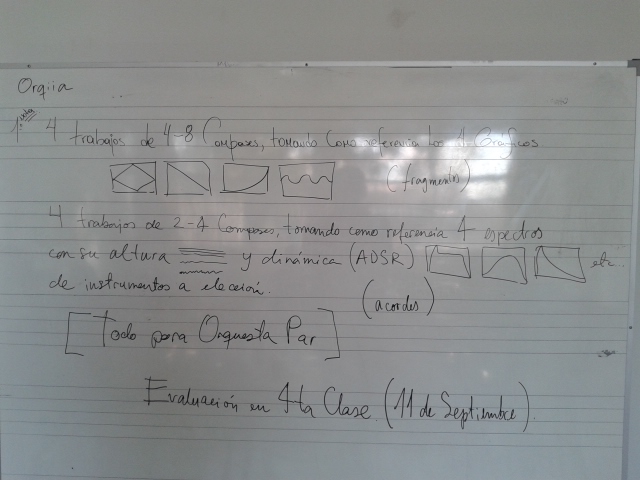 Orqiia
1ª nota 4 trabajos de 4-8 Compases, tomando como referencia los 4 Gráficos
(fragmentos)
4 trabajos de 2-4 Compases, tomando como referencia 4 espectros
con su altura y dinámica (ADSR) etc.
de instrumentos a elección.
(acordes)
[Todo para Orquesta Par]
Evaluación en 4ta Clase (11 de Septiembre).